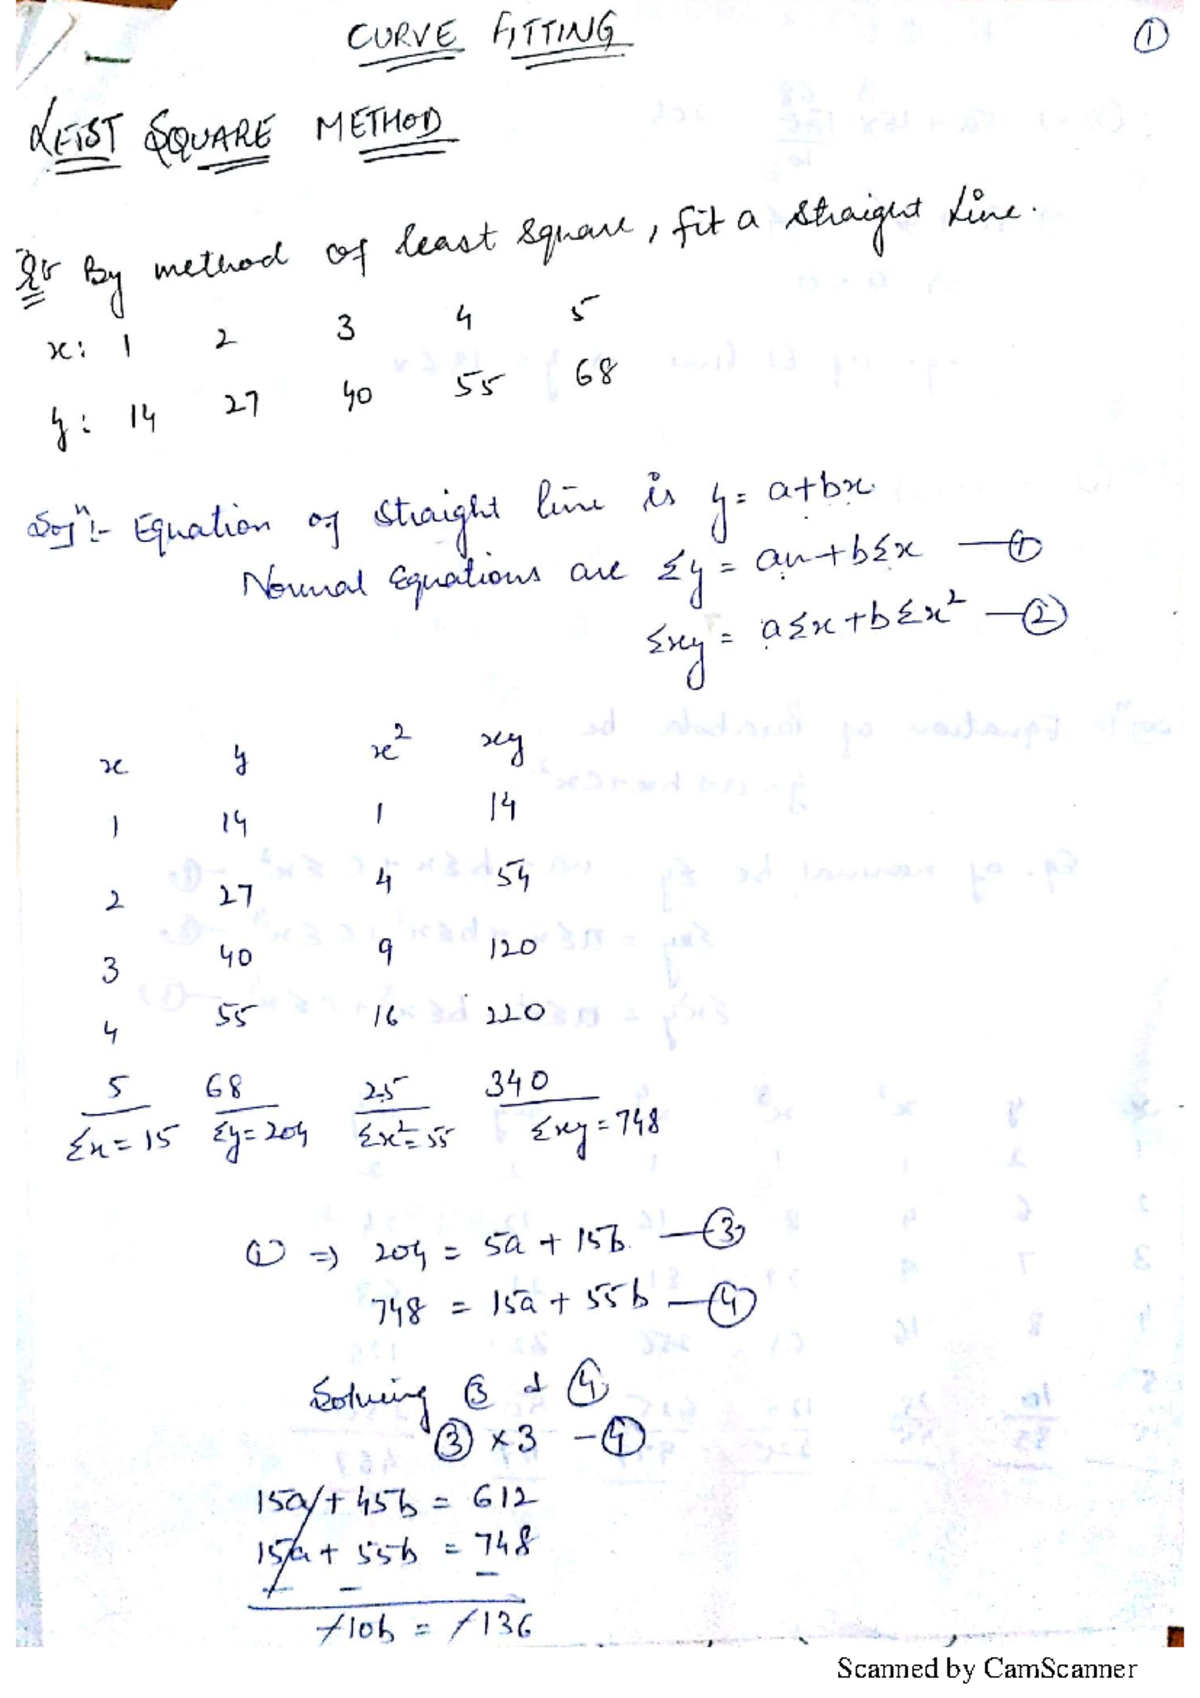 CURVE FITTING
①
LEIST SQUARE METHOD
By method of least square, fit a straight line.
x: 1 2 3 4 5
y: 14 27 40 55 68
Solⁿ:- Equation of straight line is y = a+bx
Normal Equations are Σy = an+bΣx —①
Σxy = aΣx+bΣx² —②
x y x² xy
1 14 1 14
2 27 4 54
3 40 9 120
4 55 16 220
5 68 25 340
Σx=15 Σy=204 Σx²=55 Σxy=748
① ⇒ 204 = 5a + 15b —③
748 = 15a + 55b —④
Solving ③ & ④
③ ×3 - ④
15a + 45b = 612
15a + 55b = 748
- - -
-10b = -136
Scanned by CamScanner